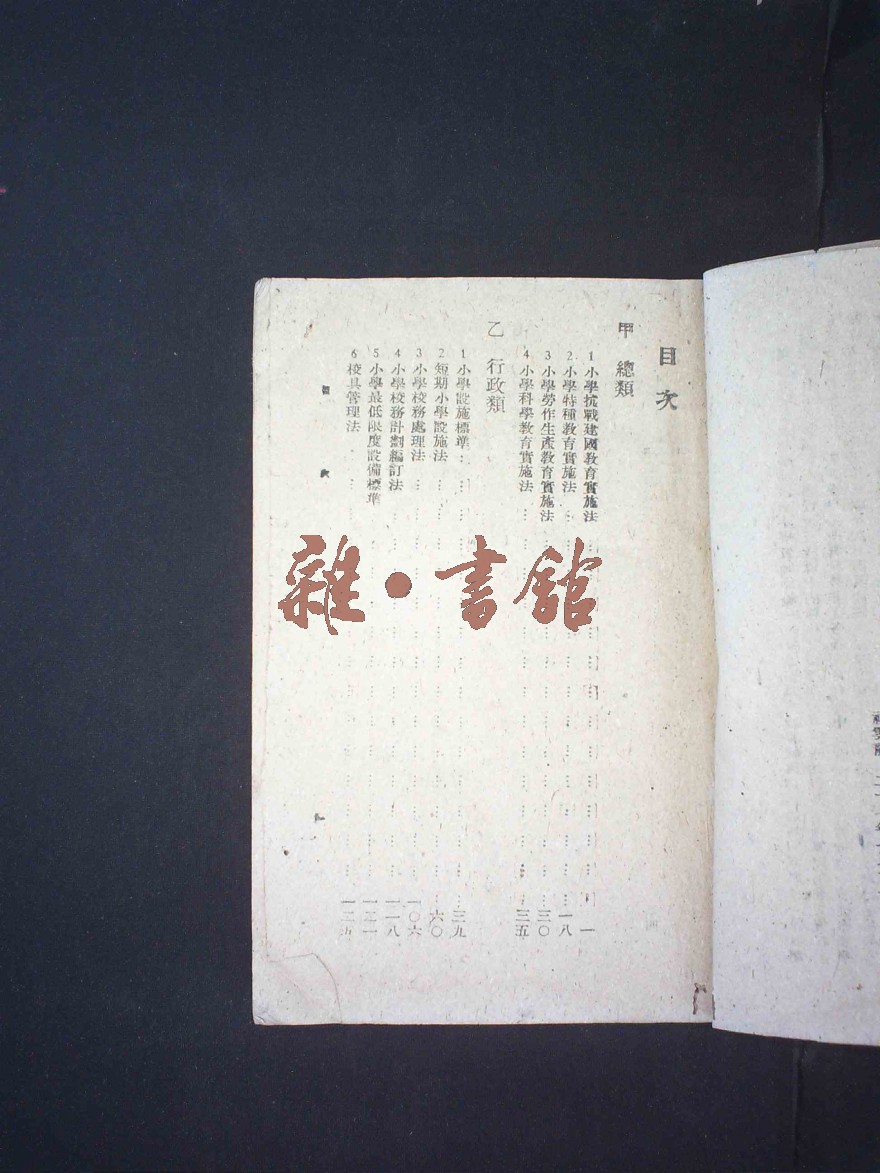 目次
甲 總類
1 小學抗戰建國教育實施法……一
2 小學特種教育實施法……一八
3 小學勞作生產教育實施法……三〇
4 小學科學教育實施法……三五
乙 行政類
1 小學設施標準……三九
2 短期小學設施法……六〇
3 小學校務處理法……一〇六
4 小學校務計劃編訂法……一一八
5 小學最低限度設備標準……一二一
6 校具管理法……一二五
目 次
一
雜·書館